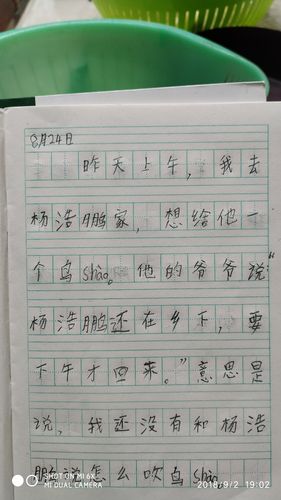 8月24日
昨天上午，我去
杨浩鹏家，想给他一
个鸟shào。他的爷爷说："
杨浩鹏还在乡下，要
下午才回来。"意思是
说，我还没有和杨浩
鹏说怎么吹鸟shào。
SHOT ON MI 6X
MI DUAL CAMERA
2018/9/2 19:02